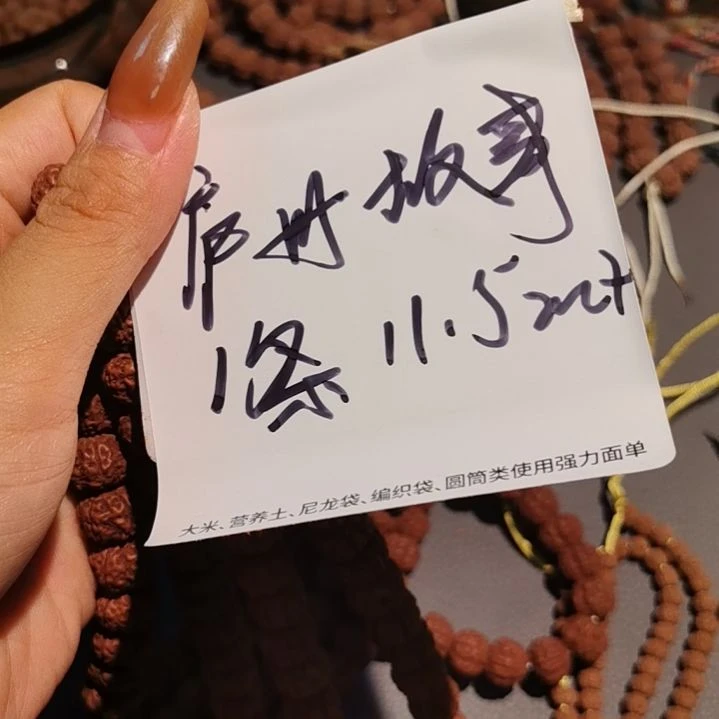 故事
1条 11.5mt
大米、营养土、尼龙袋、编织袋、圆筒类使用强力面单